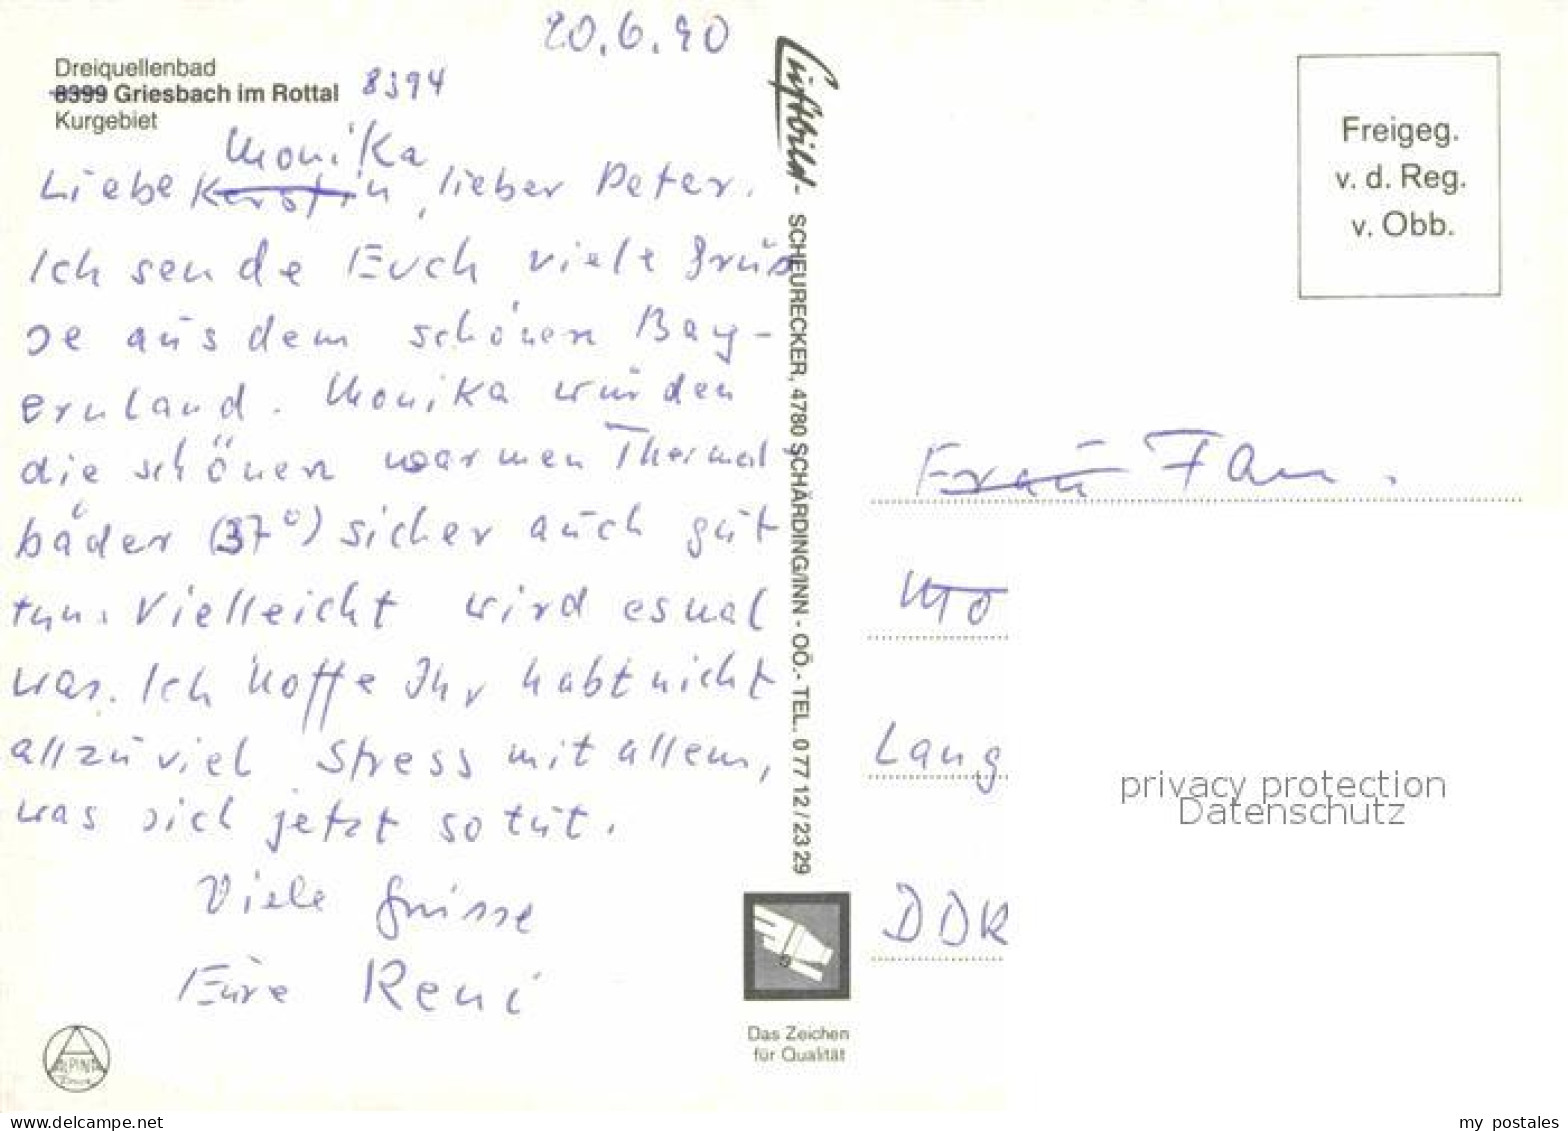 20.6.90
Dreiquellenbad
8399 Griesbach im Rottal 8394
Kurgebiet
Monika
Liebe Kerstin, lieber Peter.
Ich sende Euch viele Grüs
se aus dem schönen Bay-
ernland. Monika würden
die schönen warmen Thermal-
bäder (37°) sicher auch gut
tun. Vielleicht wird es mal
was. Ich hoffe Ihr habt nicht
allzuviel Stress mit allem,
was sich jetzt so tut.
Viele Grüsse
Eure Reni
ALPINA
Luftbild-
SCHEURECKER, 4780 SCHÄRDING/INN - OÖ.- TEL. 0 77 12 / 23 29
Das Zeichen
für Qualität
Freigeg.
v. d. Reg.
v. Obb.
Frau Fam.
Mo
Lang
DDR
privacy protection
Datenschutz
www.delcampe.net
my_postales